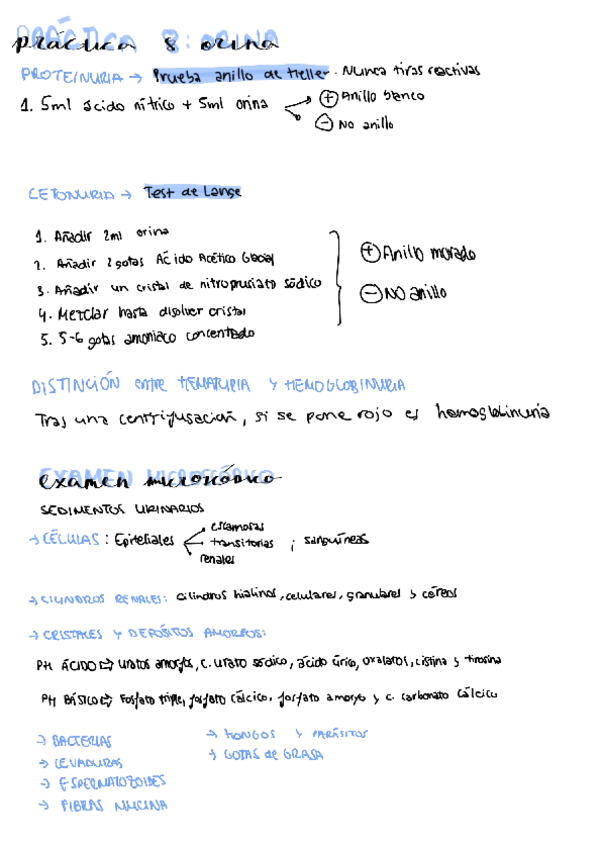 práctica 8: orina
PROTEINURIA → Prueba anillo de Heller. Nunca tiras reactivas
1. 5ml ácido nítrico + 5ml orina
+ Anillo blanco
- No anillo
CETONURIA → Test de Lange
1. Añadir 2ml orina
2. Añadir 2 gotas Ácido Acético Glacial
3. Añadir un cristal de nitroprusiato sódico
4. Mezclar hasta disolver cristal
5. 5-6 gotas amoniaco concentrado
+ Anillo morado
- NO anillo
DISTINCIÓN entre HEMATURIA Y HEMOGLOBINURIA
Tras una centrifugación, si se pone rojo es hemoglobinuria
examen microscópico
SEDIMENTOS URINARIOS
→ CÉLULAS: Epiteliales
escamosas
transitorias
renales
; sanguíneas
→ CILINDROS RENALES: cilindros hialinos, celulares, granulares y céreos
→ CRISTALES Y DEPÓSITOS AMORFOS:
PH ÁCIDO ⇨ uratos amorfos, c. urato sódico, ácido úrico, oxalatos, cistina y tirosina
PH BÁSICO ⇨ Fosfato triple, fosfato cálcico, fosfato amorfo y c. carbonato cálcico
→ BACTERIAS
→ LEVADURAS
→ ESPERMATOZOIDES
→ FIBRAS MUCINA
→ HONGOS Y PARÁSITOS
→ GOTAS de GRASA